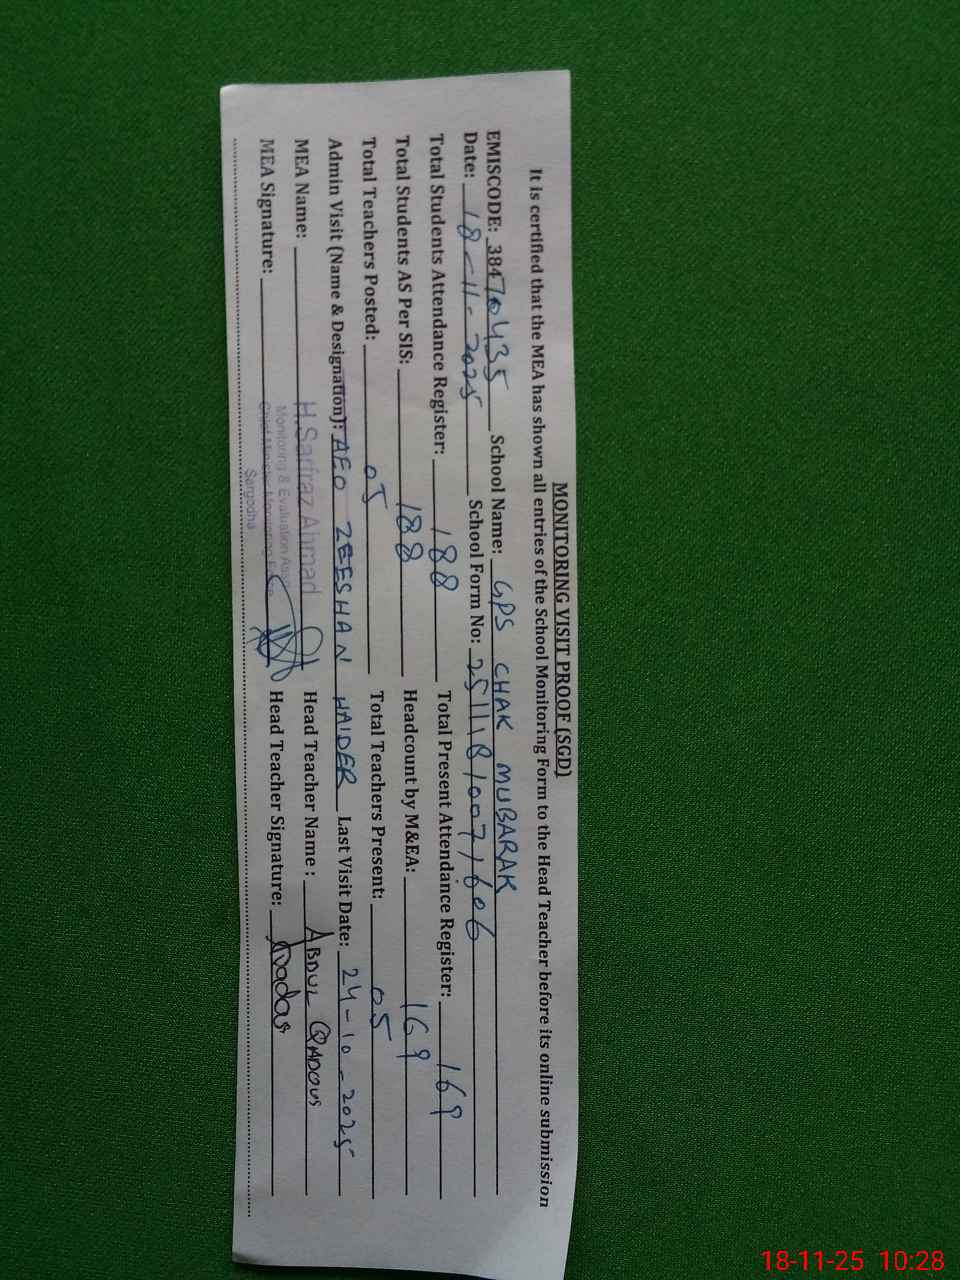 MONITORING VISIT PROOF (SGD)
It is certified that the MEA has shown all entries of the School Monitoring Form to the Head Teacher before its online submission
EMISCODE: 38470435 School Name: GPS CHAK MUBARAK
Date: 18-11-2025 School Form No: 25111810071606
Total Students Attendance Register: 188 Total Present Attendance Register: 169
Total Students AS Per SIS: 188 Headcount by M&EA: 169
Total Teachers Posted: 05 Total Teachers Present: 05
Admin Visit (Name & Designation): AEO ZEESHAN HAIDER Last Visit Date: 24-10-2025
MEA Name: H.Sarfraz Ahmad Head Teacher Name : ABDUL QADOUS
Monitoring & Evaluation
MEA Signature: Head Teacher Signature:
Chief Minister Monitoring Force
Sargodha
18-11-25 10:28